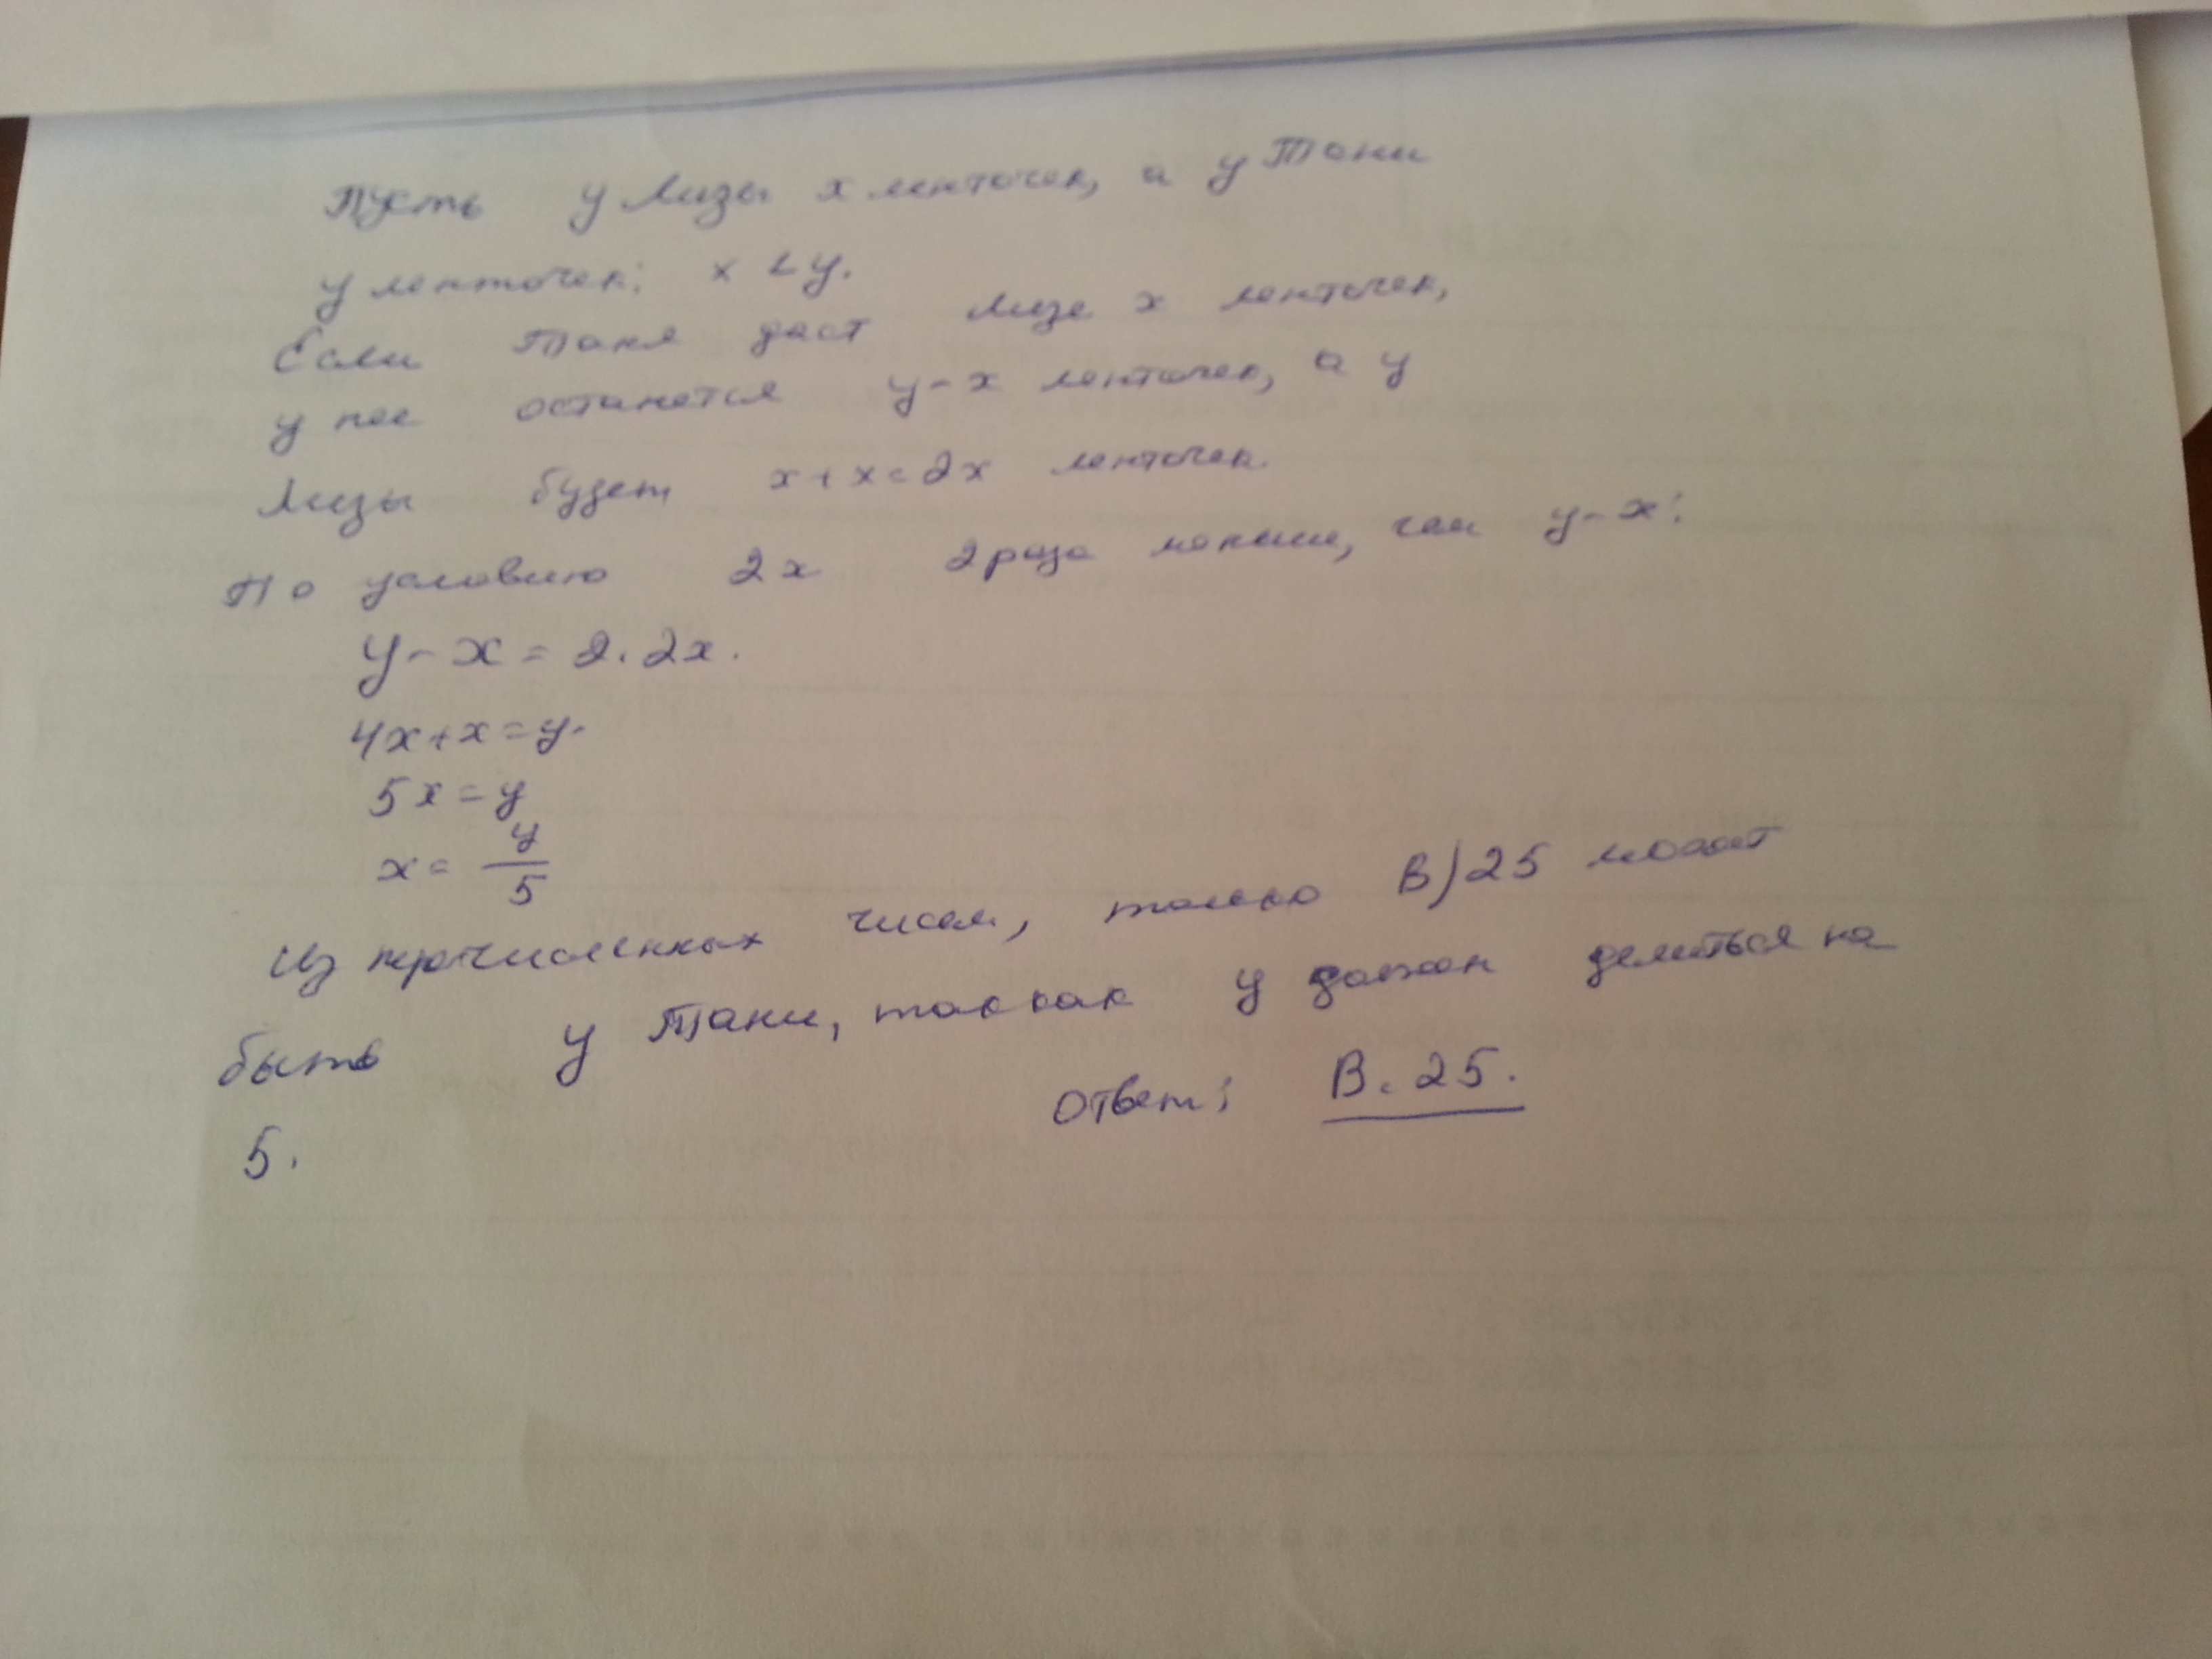 Пусть у Лизы x ленточек, а у Тани
y ленточек; x < y.
Если Таня даст Лизе x ленточек,
у нее останется y - x ленточек, а у
Лизы будет x + x = 2x ленточек.
По условию 2x 2 раза меньше, чем y - x:
y - x = 2 · 2x.
4x + x = y.
5x = y
x = y/5
Из перечисленных чисел, только B) 25 может
быть у Тани, так как y должен делиться на
5.
Ответ: B. 25.